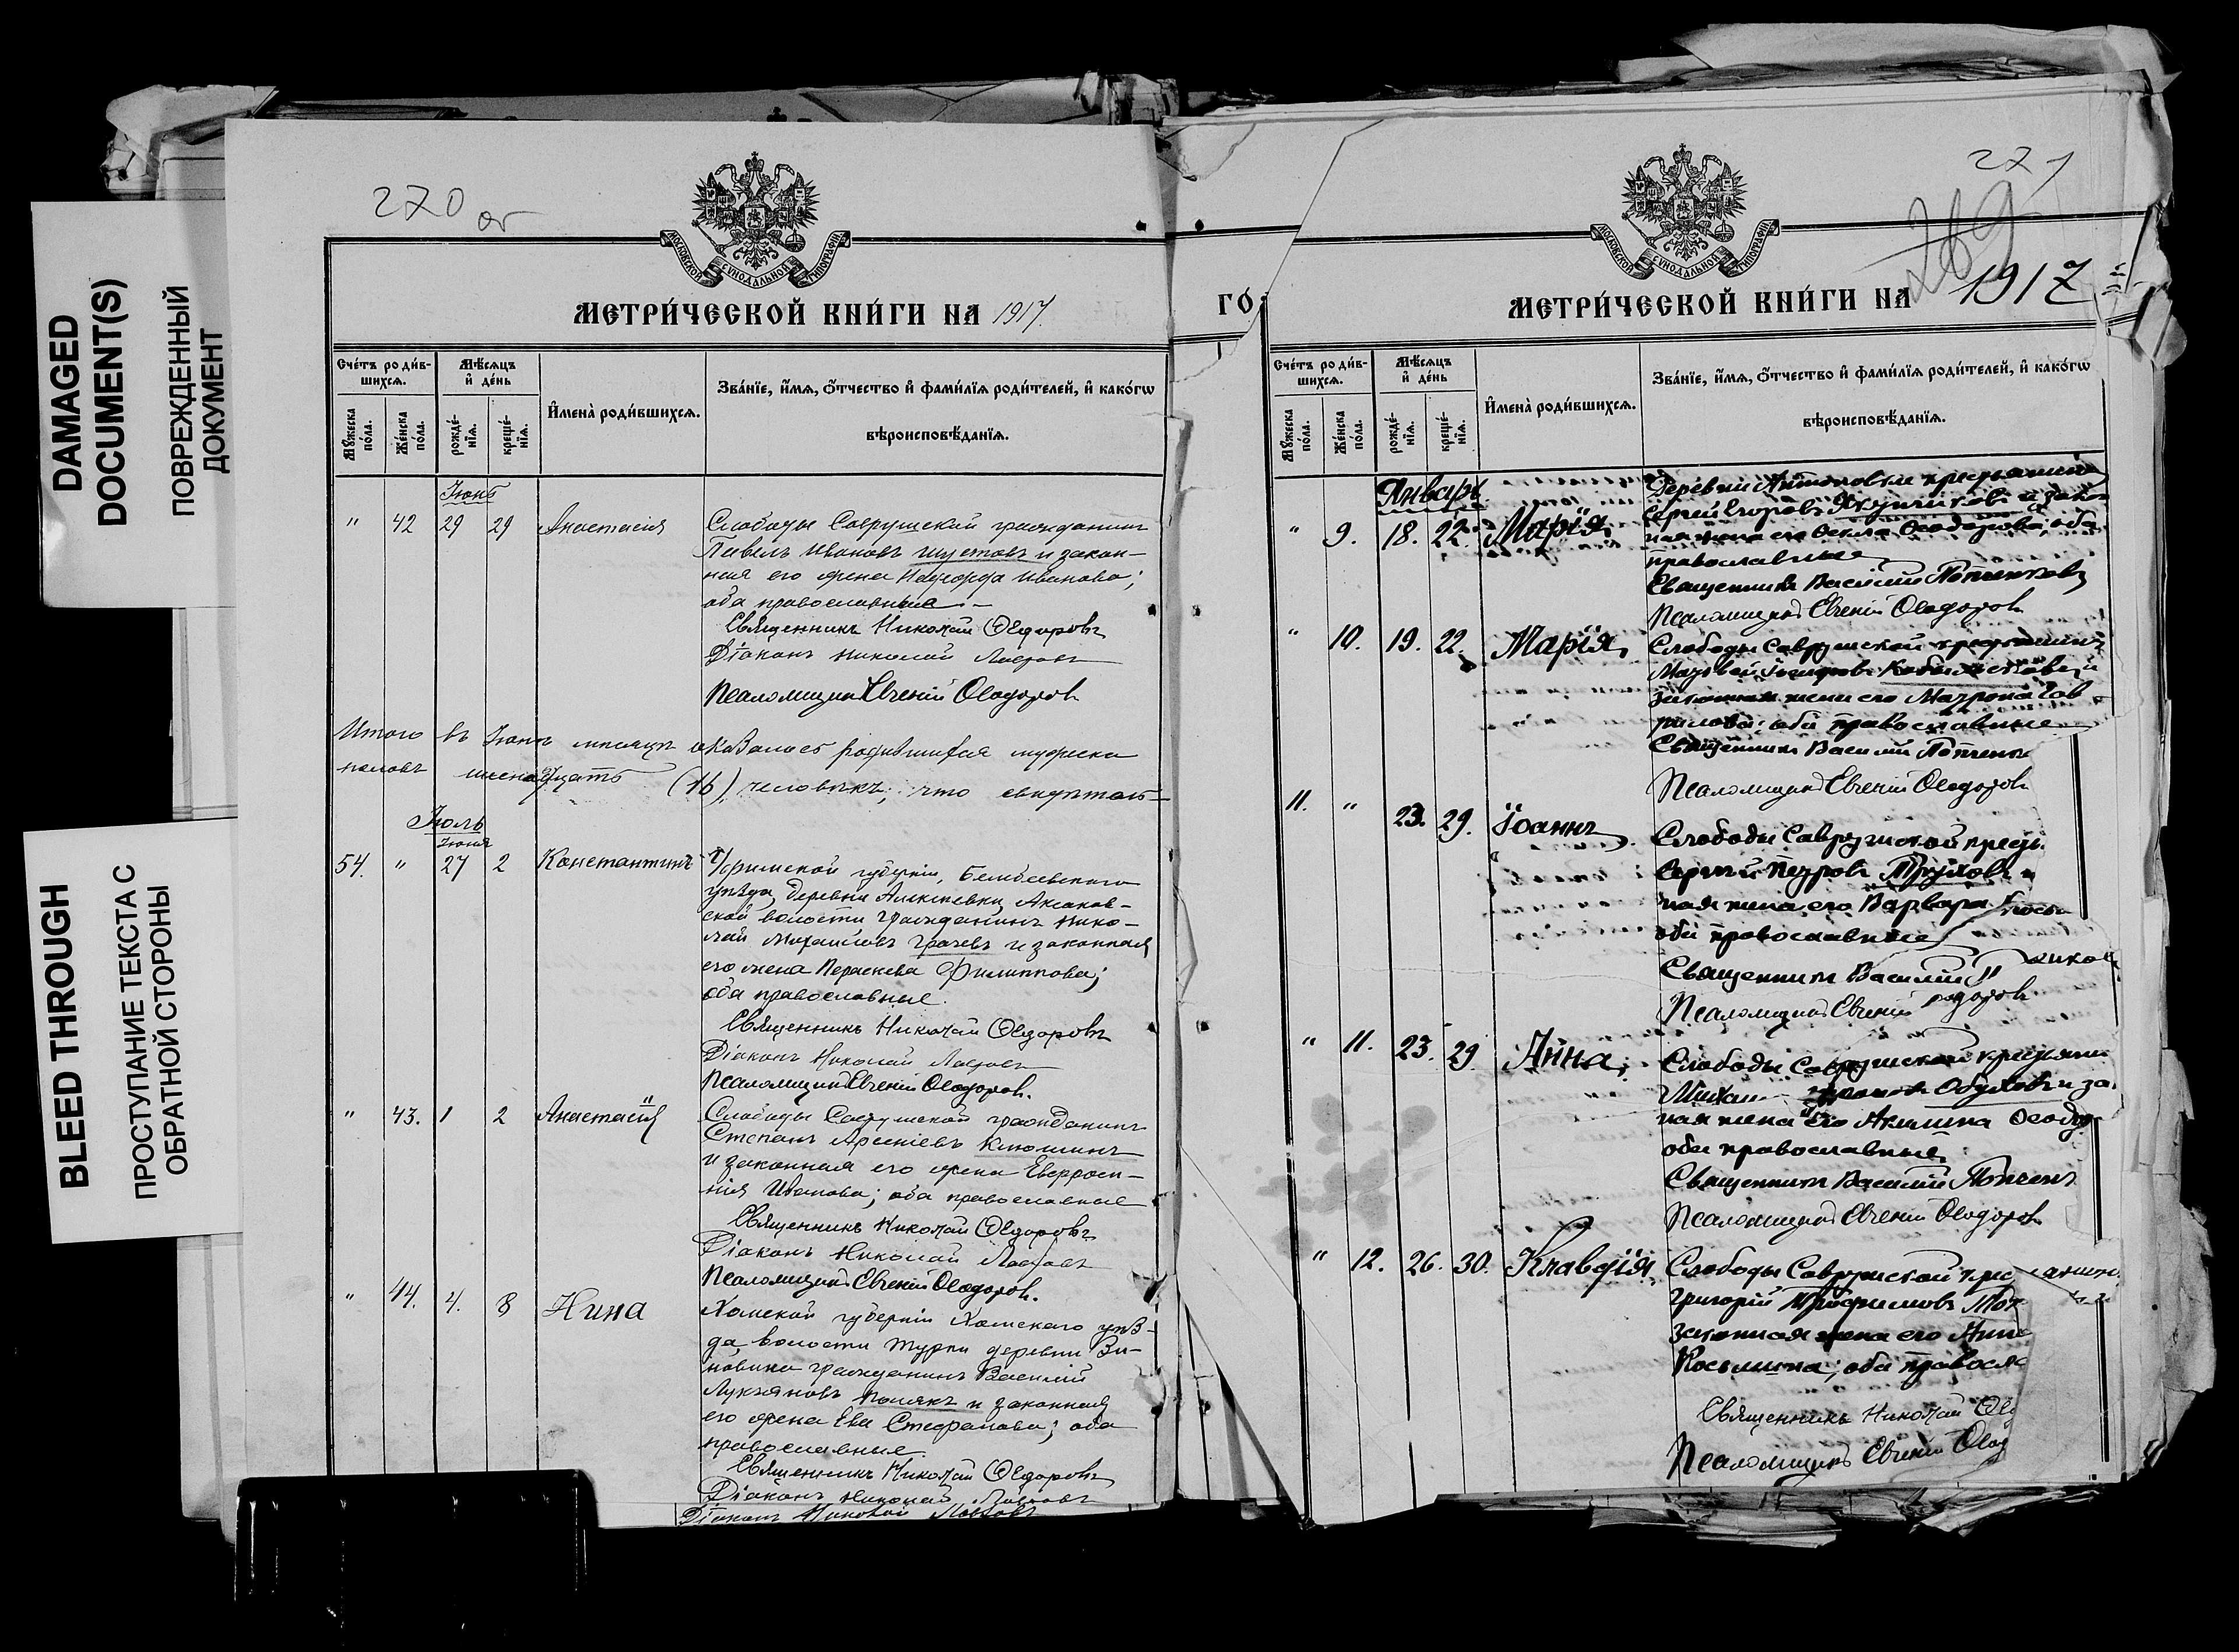 DAMAGED
DOCUMENT(S)
ПОВРЕЖДЕННЫЙ
ДОКУМЕНТ
BLEED THROUGH
ПРОСТУПАНИЕ ТЕКСТА С
ОБРАТНОЙ СТОРОНЫ
270 об
МОСКОВСКОЙ СѴНОДАЛЬНОЙ ТИПОГРАФІИ
МЕТРИ́ЧЕСКОЙ КНИ́ГИ НА 1917.
Сче́тъ роди́в-
шихсѧ.
Мѣ́сѧцъ
и҆ де́нь
Мꙋ́жеска по́ла.
Же́нска по́ла.
рожде́-
нїѧ.
креще́-
нїѧ.
И҆мена̀ роди́вшихсѧ.
Зва́нїе, и҆́мѧ, ѻ҆́тчество и҆ фами́лїѧ роди́телей, и҆ како́гѡ
вѣроисповѣ́данїѧ.
Іюнь
" 42 29 29 Анастасія
Слободы Саврушской гражданинъ
Павелъ Ивановъ и закон-
ная его жена Надежда Иванова;
оба православные.
Священникъ Николай Ѳедоровъ
Діаконъ Николай
Псаломщикъ Евгеній Ѳеодоровъ
Итого въ Іюнѣ мѣсяцѣ оказалось родившихся мужска
половъ шестнадцать (16) человѣкъ, что
Іюль
Іюня
54. " 27 2 Константинъ
Уфимской губерніи, Белебеевскаго
уѣзда, деревни Алексѣевки, Аксаков-
ской волости гражданинъ Нико-
лай Михаиловъ Грачевъ и законная
его жена Параскева Филиппова;
оба православные.
Священникъ Николай Ѳедоровъ
Діаконъ Николай
Псаломщикъ Евгеній Ѳеодоровъ.
" 43. 1 2 Анастасія
Слободы Саврушской гражданинъ
Степанъ Арсеніевъ Клюшинъ
и законная его жена Евфроси-
нія Иванова; оба православные
Священникъ Николай Ѳедоровъ
Діаконъ Николай
Псаломщикъ Евгеній Ѳеодоровъ.
" 44. 4. 8 Нина
Холмской губерніи Холмскаго уѣз-
да, волости Турки деревни
гражданинъ Василій
Лукьяновъ и законная
его жена Ева Стефанова; оба
православные
Священникъ Николай Ѳедоровъ
Діаконъ Николай
Діаконъ Николай
ГО́
271
269
МОСКОВСКОЙ СѴНОДАЛЬНОЙ ТИПОГРАФІИ
МЕТРИ́ЧЕСКОЙ КНИ́ГИ НА 1917
Сче́тъ роди́в-
шихсѧ.
Мѣ́сѧцъ
и҆ де́нь
Мꙋ́жеска по́ла.
Же́нска по́ла.
рожде́-
нїѧ.
креще́-
нїѧ.
И҆мена̀ роди́вшихсѧ.
Зва́нїе, и҆́мѧ, ѻ҆́тчество и҆ фами́лїѧ роди́телей, и҆ како́гѡ
вѣроисповѣ́данїѧ.
Январь.
" 9. 18. 22. Марія
Деревни крестьянинъ
Сергій Егоровъ и закон
ная жена его Ѳекла Ѳеодорова; оба
православные
Священникъ Василій
Псаломщикъ Евгеній Ѳеодоровъ
" 10. 19. 22. Марія,
Слободы Саврушской крестьянинъ
Матвей и
законная жена его Матрона Гав
рилова; оба православные
Священникъ Василій
Псаломщикъ Евгеній Ѳеодоровъ
11. " 23. 29. Іоаннъ
Слободы Саврушской кресть
Сергій Петровъ и
ная жена его Варвара
оба православные
Священникъ Василій
Псаломщикъ Евгеній
" 11. 23. 29. Анна,
Слободы Саврушской крестьяни
Обуховъ и за
ная жена его Акилина Ѳеодо
оба православные.
Священникъ Василій
Псаломщикъ Евгеній Ѳеодоровъ
" 12. 26. 30. Клавдія,
Слободы Саврушской крес
Григорій Трофимовъ
законная жена его Анна
Косьмина; оба правосла
Священникъ Николай Ѳед
Псаломщикъ Евгеній Ѳеод